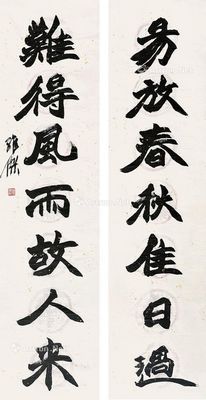 易放春秋佳日過
難得風雨故人来